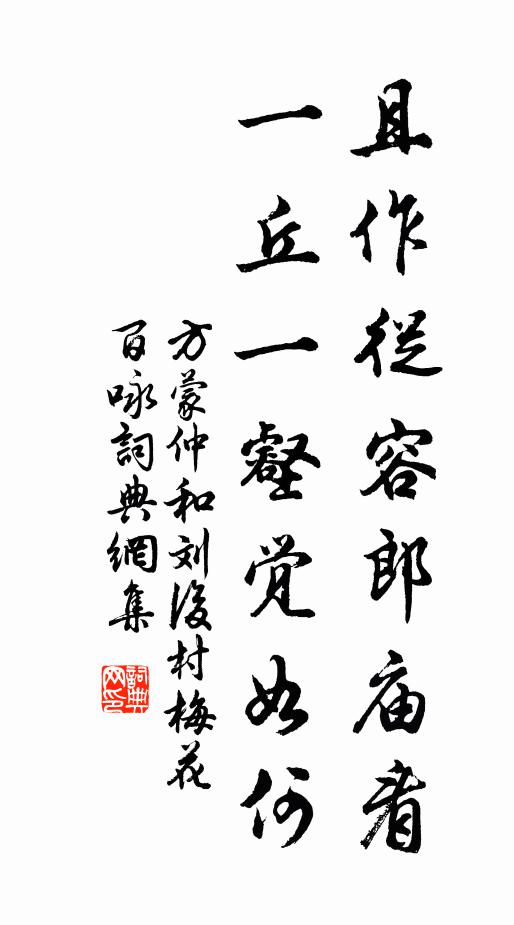 且作從容郎庙看
一丘一壑觉如何
方蒙仲和刘後村梅花
百咏詞典網集
詞典
网印